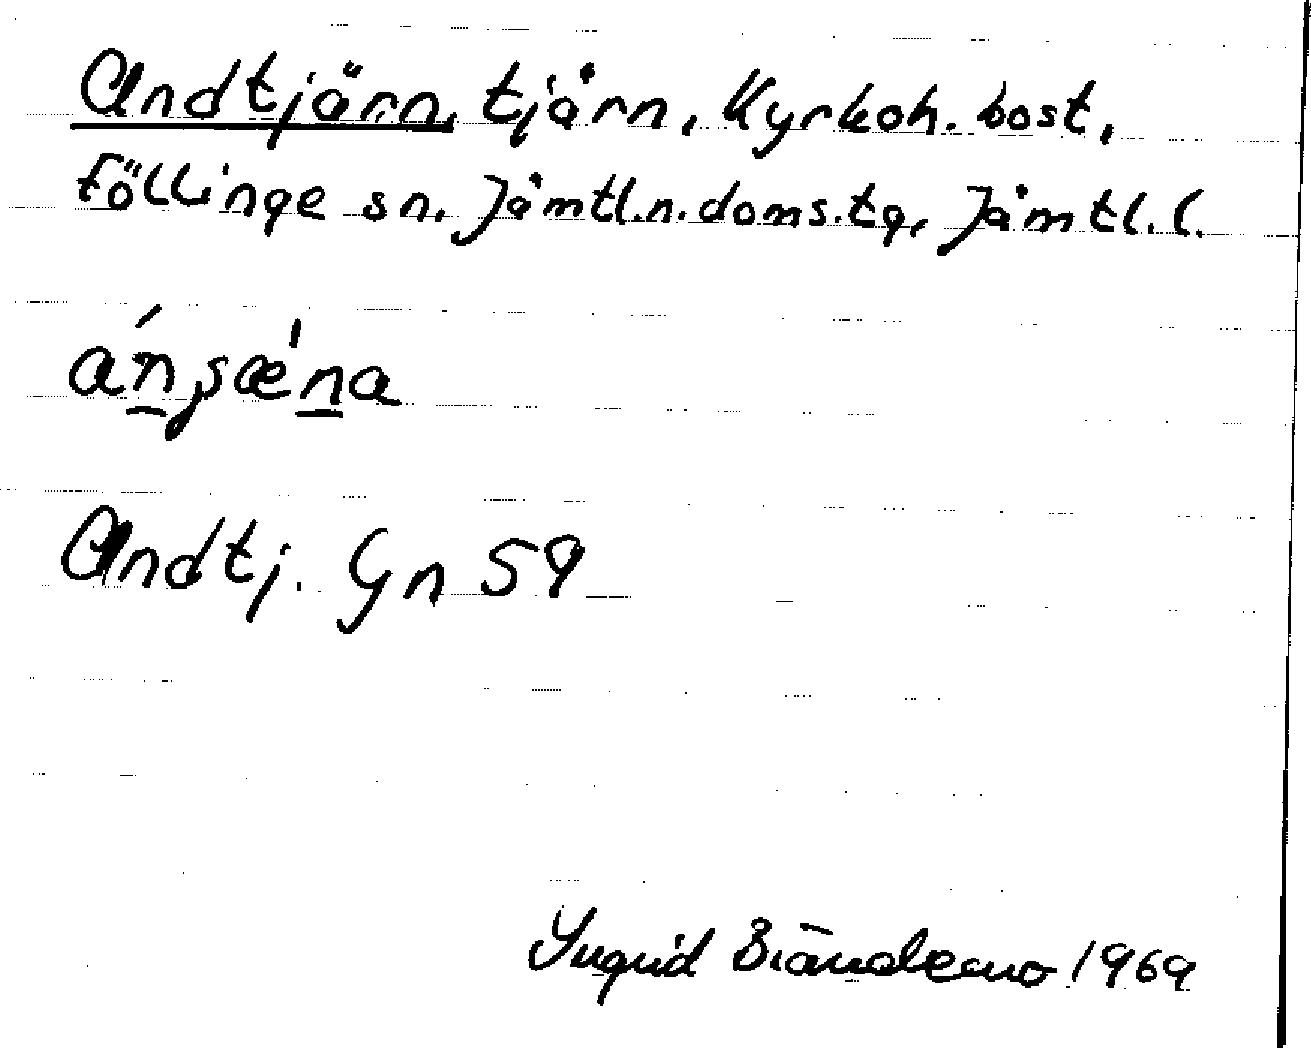 Andtjärn, tjärn, Kyrkoh. bost,
Föllinge sn. Jämtl.n.doms.tg, Jämtl.l.
Andtj. Gn 59
Ingrid 1969